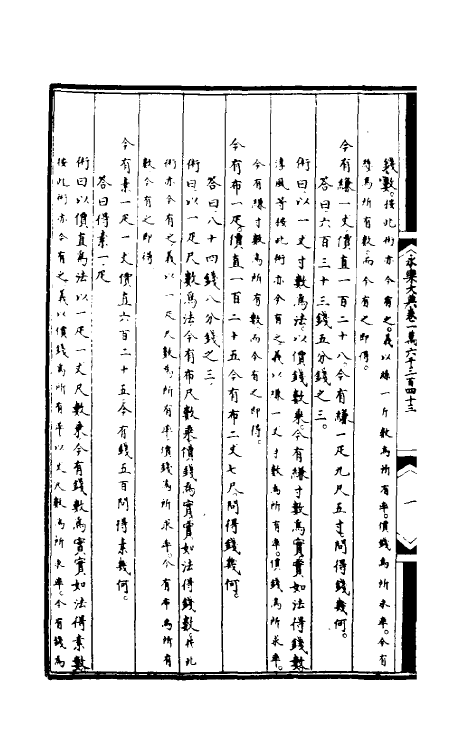 錢數。按此術亦今有之義。以絲一斤數爲所有率。價錢爲所求率。今有
絲爲所有數。而今有之即得。
今有縑一丈價直一百二十八。今有縑一疋九尺五寸。問得錢幾何。
荅曰六百三十三錢五分錢之三。
術曰以一丈寸數爲法。以價錢數乘今有縑寸數爲實實如法得錢數
淳風等按此術亦今有之義以縑一丈寸數爲所有率。價錢爲所求率。
今有縑寸數爲所有數而今有之即得。
今有布一疋。價直一百二十五今有布二丈七尺。問得錢幾何。
荅曰八十四錢八分錢之三。
術曰以一疋尺數爲法今有布尺數乘價錢爲實實如法得錢數按此
術亦今有之義以一疋尺數爲所有率價錢爲所求率。今有布爲所有
數今有之即得
今有素一疋一丈價直六百二十五今有錢五百問得素幾何。
荅曰得素一疋
術曰以價直爲法以一疋一丈尺數乘今有錢數爲實實如法得素數
按此術亦今有之義以價錢爲所有率以丈尺數爲所求率。今有錢爲
永樂大典卷一萬六千三百四十三
一